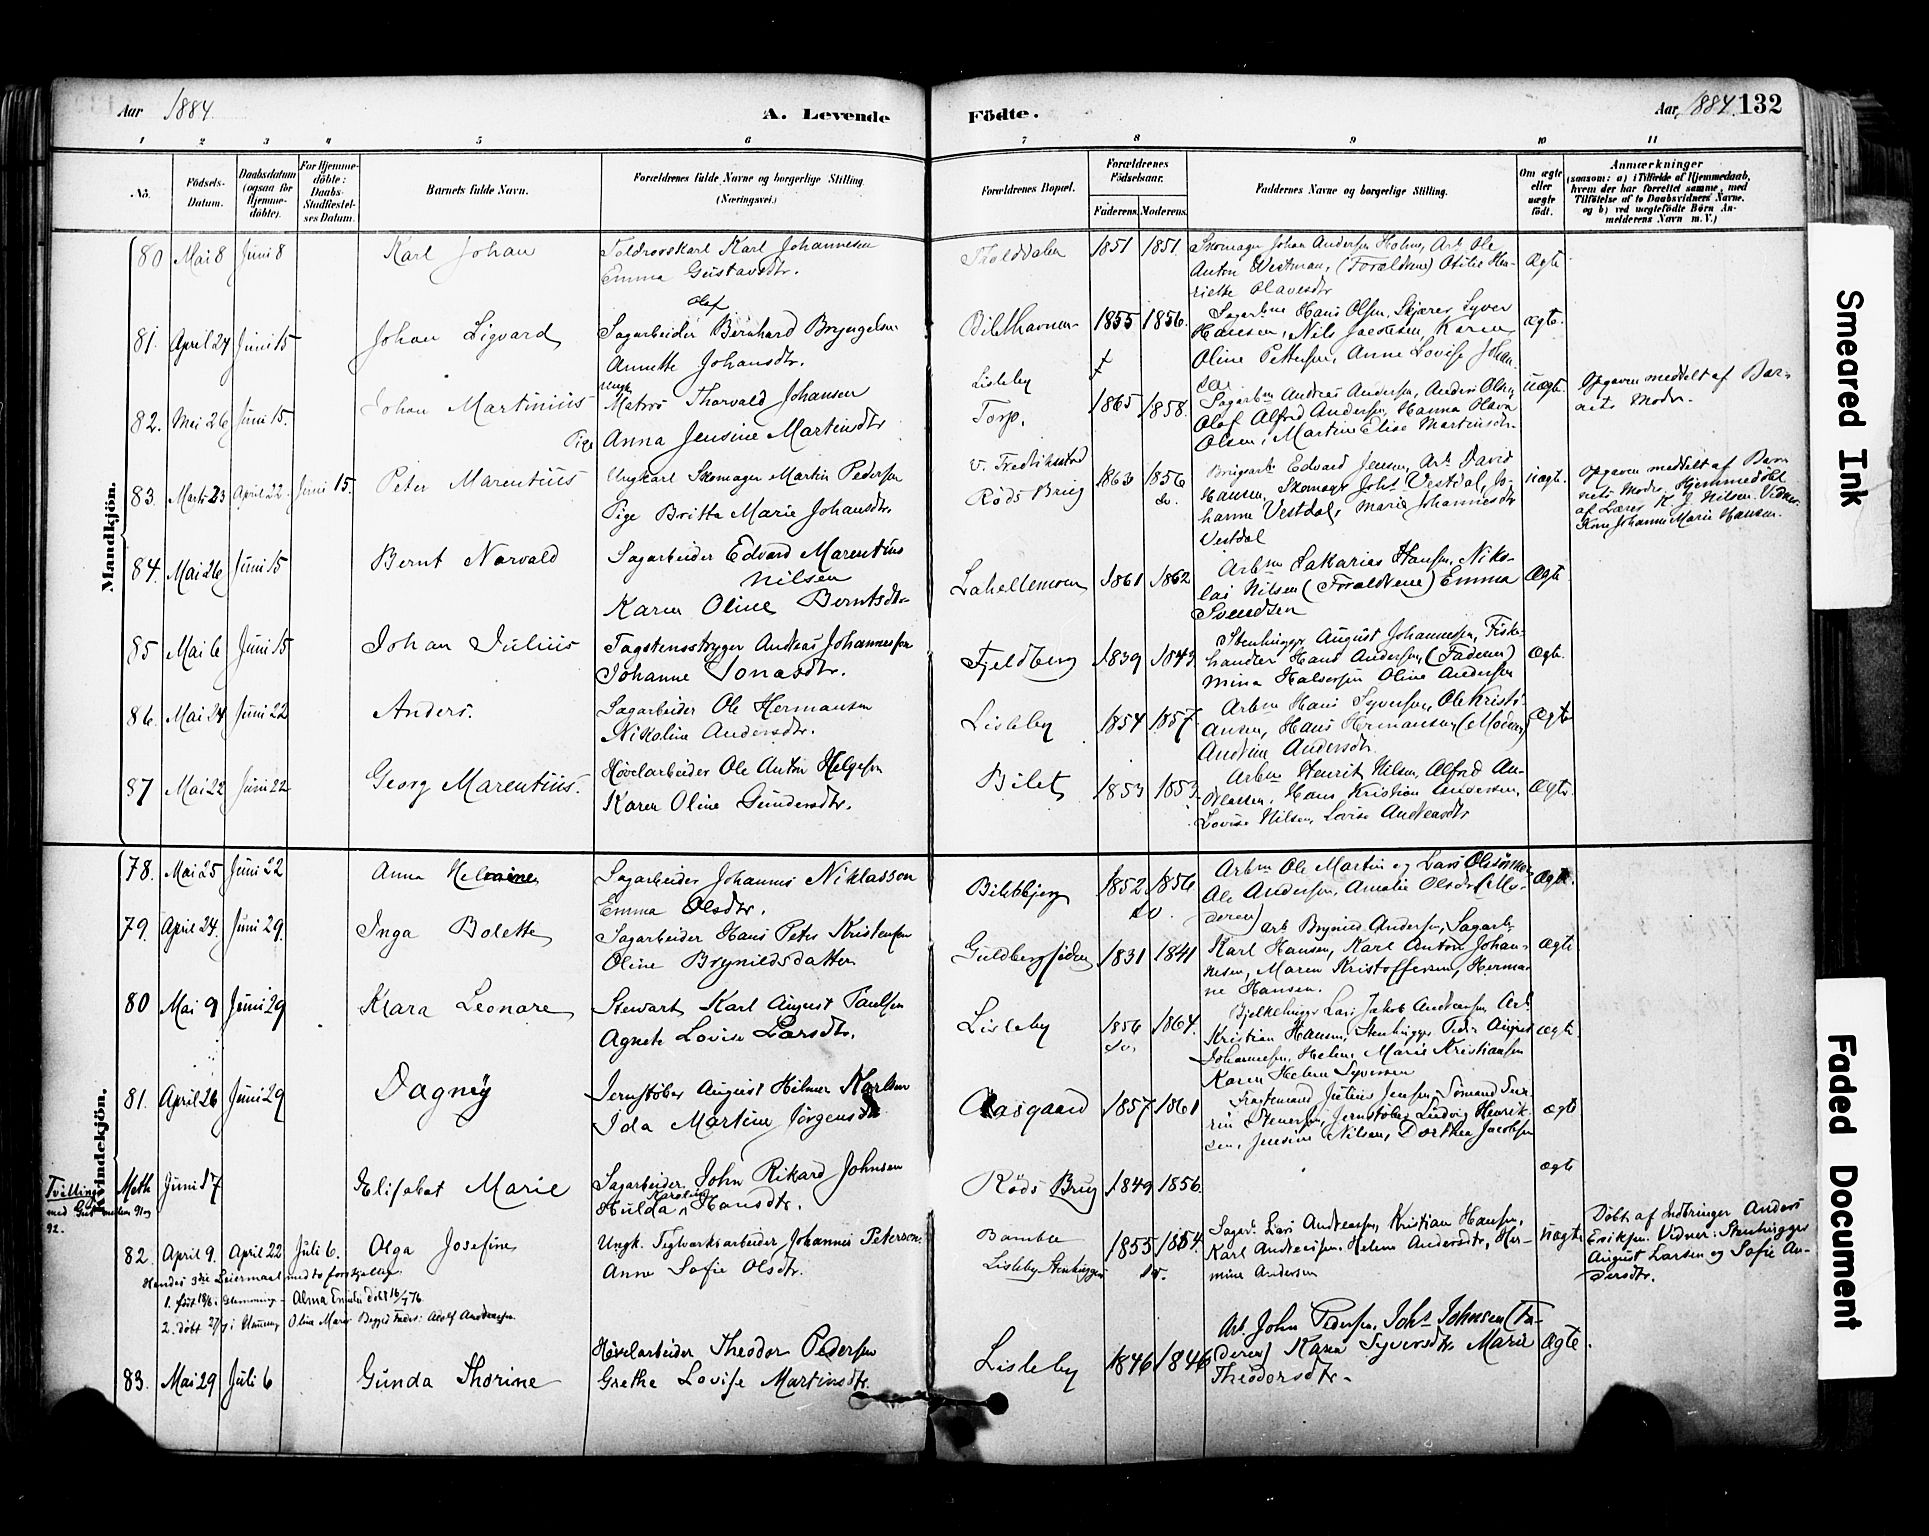 Aar 1884.
A. Levende
Födte.
Aar, 1884. 132
1 2 3 4 5 6 7 8 9 10 11
No.
Födsels-Datum.
Daabsdatum (ogsaa for Hjemme-döbte).
For Hjemme-döbte: Daabs-Stadfæstel-ses Datum.
Barnets fulde Navn.
Forældrenes fulde Navne og borgerlige Stilling. (Næringsvei.)
Forældrenes Bopæl.
Forældrenes Födselsaar.
Faderens. Moderens.
Faddernes Navne og borgerlige Stilling.
Om ægte eller uægte födt.
Anmærkninger
(saasom: a) i Tilfælde af Hjemmedaab, hvem der har forrettet samme, med Tilföielse af to Daabsvidners Navne, og b) ved uægtefödte Börn An-melderens Navn m. V.)
Mandkjön.
80 Mai 8 Juni 8 Karl Johan
Karl Johannesen
Emma Gustavsdtr.
1851 1851.
Skomager Johan Andersen Holm, Arb. Ole
Anton Westman, (Forældrene)
riette Olavesdtr
Ægte
81. April 27 Juni 15 Johan Sigvard
Olaf
Sagarbeider Bernhard Bryngelsen
Annette Johansdtr.
1855 1856.
Hans Olsen, Syver
Hansen, Nils Jacobsen, Karen
Oline Pettersen, Anne Lovise Johan-
sen
Ægte.
82. Mai 26 Juni 15. Johan Martinius
Ungk.
Matros Thorvald Johansen
Pige Anna Jensine Martinsdtr
Lisleby
Torp.
1865 1858.
Sagarbm Andreas Andersen, Anders Olsen,
Olaf Alfred Andersen, Hanna Olava
Olsen, Martine Elise Martinsdtr.
uægte.
Opgaven meddelt af Bar-
nets Moder.
83. Marts 23 April 22. Juni 15. Peter Marentius
Ungkarl Skomager Martin Pedersen
Pige Britta Marie Johansdtr.
v. Fredrikstad
Røds Brug
1863 1856
do.
Edvard Jensen, Arb. David
Hansen, Skomager Johs Vestdal, Jo-
hanne Vestdal, Marie Johannesdtr
Vestdal
uægte.
Opgaven meddelt af Bar-
nets Moder. Hjemmedöbt
af Lærer K. J. Nilsen. Vidner
Kone Johanne Marie Hansen.
84. Mai 26 Juni 15 Bernt Norvald
Sagarbeider Edvard Marentius
Nilsen
Karen Oline Berntsdtr
Lahellemoen 1861 1862
Arbm Sakarias Hansen, Niko-
lai Nilsen (Forældrene) Emma
Svendsen
Ægte
85 Mai 6 Juni 15 Johan Julius
Tagstensstryger Andreas Johannessen
Johanne Jonasdtr.
Fjeldberg 1839 1843.
Stenhugger August Johannesen, Fiske-
handler Hans Andersen, (Faderen)
Mina Halversen Oline Andersen
Ægte.
86. Mai 24 Juni 22 Anders.
Sagarbeider Ole Hermansen
Nikoline Andersdtr.
Lisleby 1854 1857.
Arbm Hans Syversen, Ole Kristi-
ansen, Hans Hermansen, (Moderen)
Andrine Andersdtr.
Ægte
87 Mai 22 Juni 22 Georg Marentius.
Høvelarbeider Ole Anton Helgesen
Karen Oline Gundersdtr.
Bilet 1853 1853.
Arbm Henrik Nilsen, Alfred An-
dreasen, Hans Kristian Andersen,
Lovise Nilsen, Lovise Andreasdtr
Ægte.
Kvindekjön.
78. Mai 25 Juni 22 Anna Helmine
Sagarbeider Johannes Niklasson
Emma Olsdtr.
Biletbjerg 1852 1856
do.
Arbm Ole Martin og Lars
Ole Andersen, Amalie Olsdtr (Mo-
deren)
Ægte.
79. April 24. Juni 29. Inga Bolette
Sagarbeider Hans Peter Kristensen
Oline Brynildsdatter
Guldbergsiden 1831 1841
Arb. Brynild Andersen, Sagarb.
Karl Hansen, Karl Anton Johan-
nesen, Maren Kristoffersen, Herma-
ne Hansen.
Ægte
80 Mai 9 Juni 29 Klara Leonore
Stewart Karl August Paulsen
Agnete Lovise Larsdtr.
Lisleby 1856 1864.
do.
Bjelkehugger Lars Jakob Andreasen Arb.
Kristian Hansen, Stenhugger Peder August
Johannesen, Helene Marie Kristiansen
Karen Helene Syversen
Ægte
81. April 26 Juni 29 Dagny
Jernstøber August Hilmer Karlsen
Ida Martine Jørgensdtr
Aasgaard 1857 1861
Julius Jensen, Sømand Seve-
rin Stenersen, Jernstøber Ludvig Henrik-
sen, Jensine Nilsen, Dorthea Jacobsen
Ægte
Tvilling
92.
Juni 17 Elisabet Marie
Sagarbeider John Rikard Johnsen
Karoline
Hulda Hansdtr.
Røds Brug 1849 1856.
Ægte
82. April 9. April 22 Juli 6. Olga Josefine
Ungk. Teglværksarbeider Johannes Peterson.
Anne Sofie Olsdtr.
Bamble
Lisleby Stenhuggeri
1855 1854.
do.
Sagarb. Lars Andreasen, Kristian Hansen,
Karl Andreassen, Helene Andersdtr, Her-
mine Andersen
uægte
Döbt af Indbringer Anders
Eriksen. Vidner: Stenhugger
August Larsen og Sofie An-
dersdtr.
Hendes 3die Leiermaal med to forskjellige.
83. Mai 29 Juli 6 Gunda Thorine
Høvelarbeider Theodor Pedersen
Grethe Lovise Martinsdtr.
Lisleby 1846 1846
Arb. John Pedersen, Johs Johnsen (Fa-
deren) Karen Syversdtr Marie
Theodorsdtr.
Ægte
Smeared Ink
Faded Document